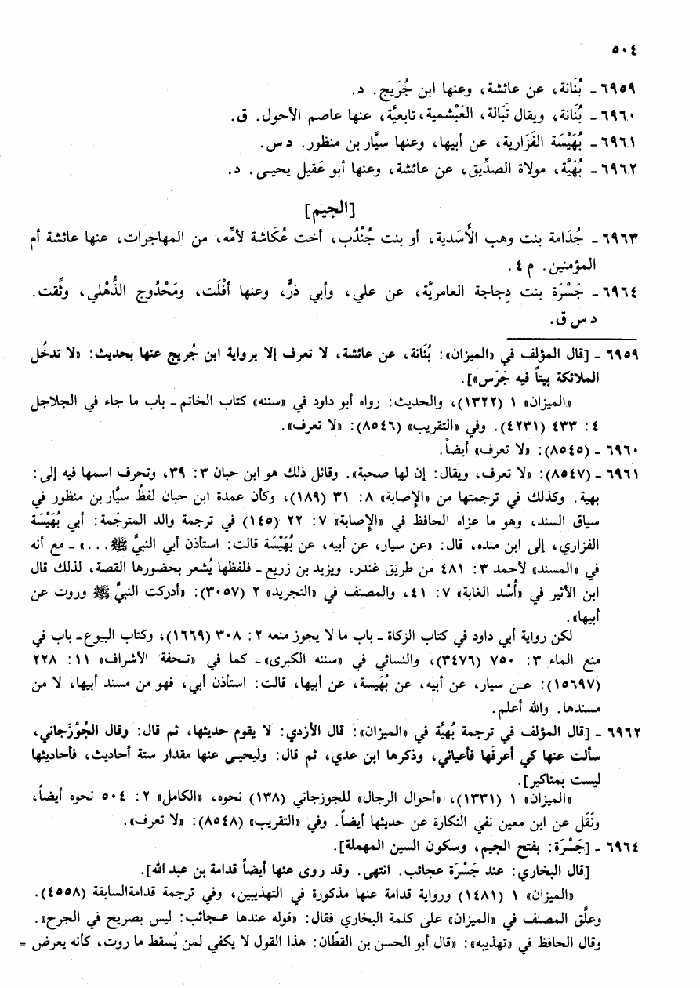 ٥٠٤
٦٩٥٩ - بُنَانة، عن عائشة، وعنها ابن جُريج. د.
٦٩٦٠ - بُنَانة، ويقال تَبَالة، العَبْشمية، تابعيَّة، عنها عاصم الأحول. ق.
٦٩٦١ - بُهَيْسَة الفَزَارية، عن أبيها، وعنها سيَّار بن منظور. د س.
٦٩٦٢ - بُهَيَّة، مولاة الصدِّيق، عن عائشة، وعنها أبو عَقيل يحيى. د.
[الجيم]
٦٩٦٣ - جُدَامة بنت وهب الأَسَدية، أو بنت جُنْدُب، أخت عُكَاشة لأمِّه، من المهاجرات، عنها عائشة أم
المؤمنين. م ٤.
٦٩٦٤ - جَسْرَة بنت دِجاجة العامريَّة، عن علي، وأبي ذرٍّ، وعنها أفْلَت، ومَحْدُوج الذُّهْلي، وثِّقت.
د س ق.
٦٩٥٩ - [قال المؤلف في «الميزان»: بُنَانة، عن عائشة، لا تعرف إلا برواية ابن جُريج عنها بحديث: «لا تدخُل
الملائكة بيتاً فيه جَرَس»].
«الميزان» ١ (١٣٢٢)، والحديث: رواه أبو داود في «سننه» كتاب الخاتم - باب ما جاء في الجلاجل
٤: ٤٣٣ (٤٢٣١). وفي «التقريب» (٨٥٤٦): «لا تعرف».
٦٩٦٠ - (٨٥٤٥): «لا تعرف» أيضاً.
٦٩٦١ - (٨٥٤٧): «لا تعرف، ويقال: إن لها صحبة». وقائل ذلك هو ابن حبان ٣: ٣٩، وتحرف اسمها فيه إلى:
بهية. وكذلك في ترجمتها من «الإصابة» ٨: ٣١ (١٨٩)، وكأن عمدة ابن حبان لفظ سيَّار بن منظور في
سياق السند، وهو ما عزاه الحافظ في «الإصابة» ٧: ٢٢ (١٤٥) في ترجمة والد المترجَمة: أبي بُهَيْسَة
الفزاري، إلى ابن منده، قال: «عن سيار، عن أبيه، عن بُهَيْسَة قالت: استأذن أبي النبيَّ ﷺ...» - مع أنه
في «المسند» لأحمد ٣: ٤٨١ من طريق غندر، ويزيد بن زريع - فلفظها يُشعر بحضورها القصة، لذلك قال
ابن الأثير في «أُسْد الغابة» ٧: ٤١، والمصنف في «التجريد» ٢ (٣٠٥٧): «أدركت النبيَّ ﷺ وروت عن
أبيها».
لكن رواية أبي داود في كتاب الزكاة - باب ما لا يجوز منعه ٢: ٣٠٨ (١٦٦٩)، وكتاب البيوع - باب في
منع الماء ٣: ٧٥٠ (٣٤٧٦)، والنسائي في «سننه الكبرى» - كما في «تحفة الأشراف» ١١: ٢٢٨
(١٥٦٩٧): عن سيار، عن أبيه، عن بُهَيسة، عن أبيها، قالت: استأذن أبي، فهو من مسند أبيها، لا من
مسندها. والله أعلم.
٦٩٦٢ - [قال المؤلف في ترجمة بُهيَّة في «الميزان»: قال الأزدي: لا يقوم حديثها، ثم قال: وقال الجُوْزَجاني،
سألت عنها كي أعرفَها فأعياني، وذكرها ابن عدي، ثم قال: وليحيى عنها مقدار ستة أحاديث، فأحاديثها
ليست بمناكير].
«الميزان» ١ (١٣٣١)، «أحوال الرجال» للجوزجاني (١٣٨) نحوه، «الكامل» ٢: ٥٠٤ نحوه أيضاً،
ونَقَل عن ابن معين نفي النكارة عن حديثها أيضاً. وفي «التقريب» (٨٥٤٨): «لا تعرف».
٦٩٦٤ - [جَسْرَة: بفتح الجيم، وسكون السين المهملة].
[قال البخاري: عند جَسْرَة عجائب. انتهى. وقد روى عنها أيضاً قدامة بن عبد الله].
«الميزان» ١ (١٤٨١) ورواية قدامة عنها مذكورة في التهذيبين، وفي ترجمة قدامة السابقة (٤٥٥٨).
وعلَّق المصنف في «الميزان» على كلمة البخاري فقال: «قوله عندها عجائب: ليس بصريح في الجرح».
وقال الحافظ في «تهذيبه»: «قال أبو الحسن بن القطّان: هذا القول لا يكفي لمن يُسقط ما روت، كأنه يعرض =